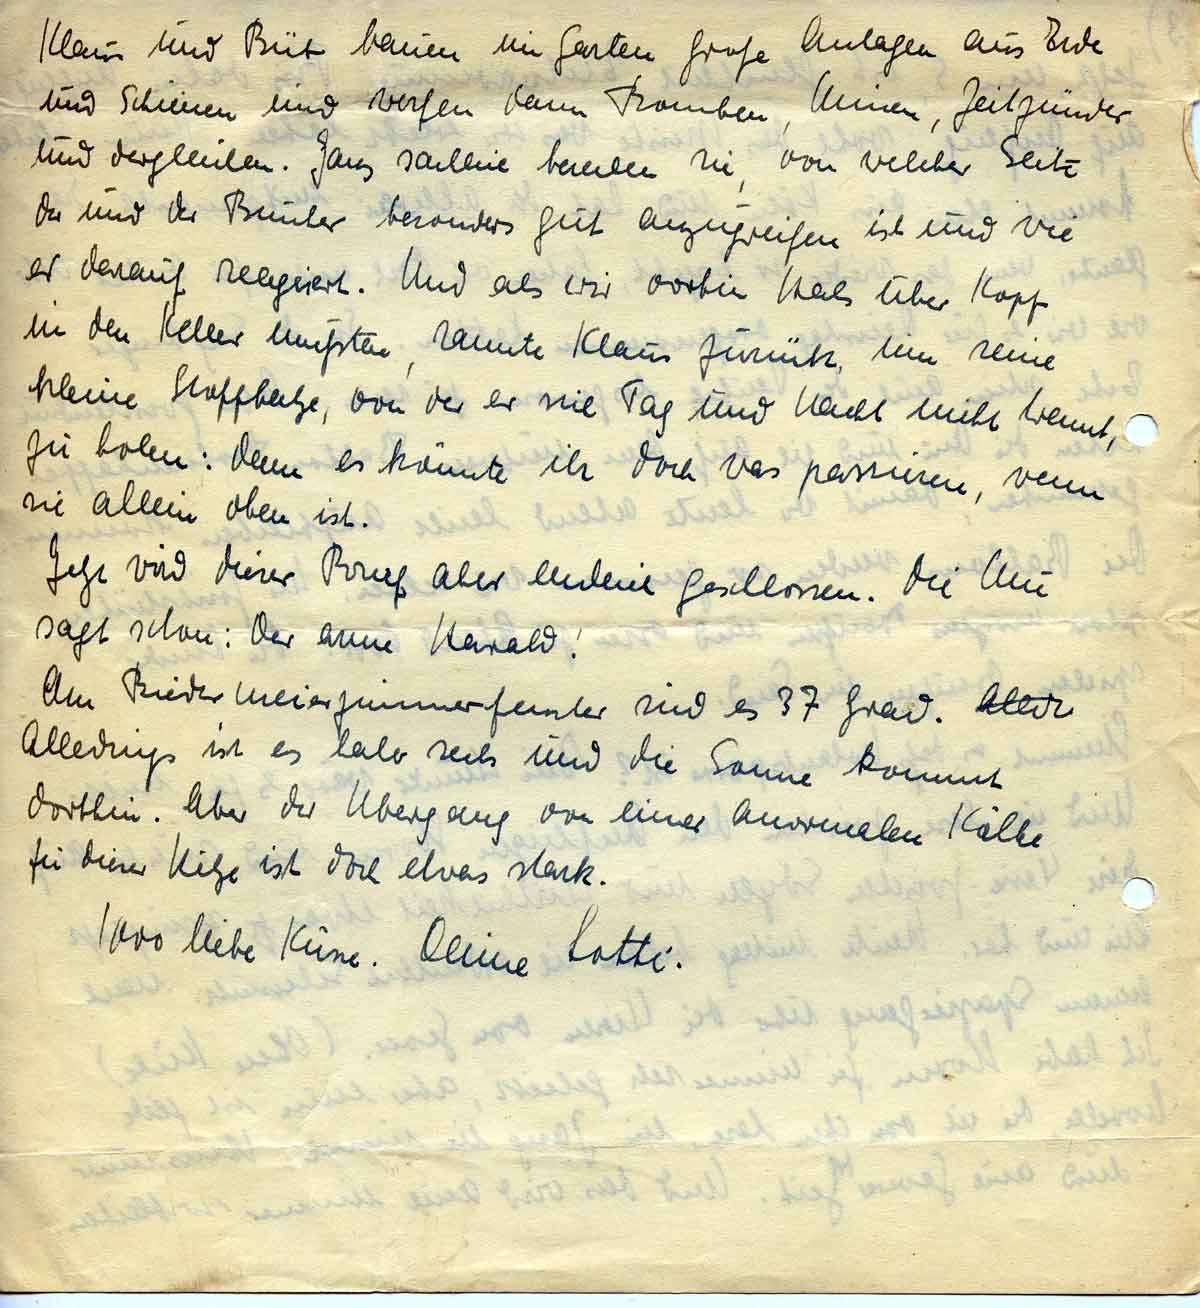 Klaus und Büt bauen im Garten große Anlagen aus Erde
und Schienen und werfen dann Bomben, Minen, Zeitzünder
und dergleichen. Ganz sachlich bereden sie, von welcher Seite
der und der Bunker besonders gut anzugreifen ist und wie
er darauf reagiert. Und als wir vorhin Hals über Kopf
in den Keller mußten, rannte Klaus zurück, um seine
kleine Stoffkatze, von der er sie Tag und Nacht nicht trennt,
zu holen: denn es könnte ihr doch was passieren, wenn
sie allein oben ist.
Jetzt wird dieser Brief aber endlich geschlossen. Die
sagt schon: Der arme Harald!
Am Biedermeierzimmerfenster sind es 37 Grad.
Alledings ist es halb sechs und die Sonne kommt
dorthin. Aber der Übergang von einer anormalen Kälte
zu dieser Hitze ist doch etwas stark.
1000 liebe Küsse. Deine Lotti.